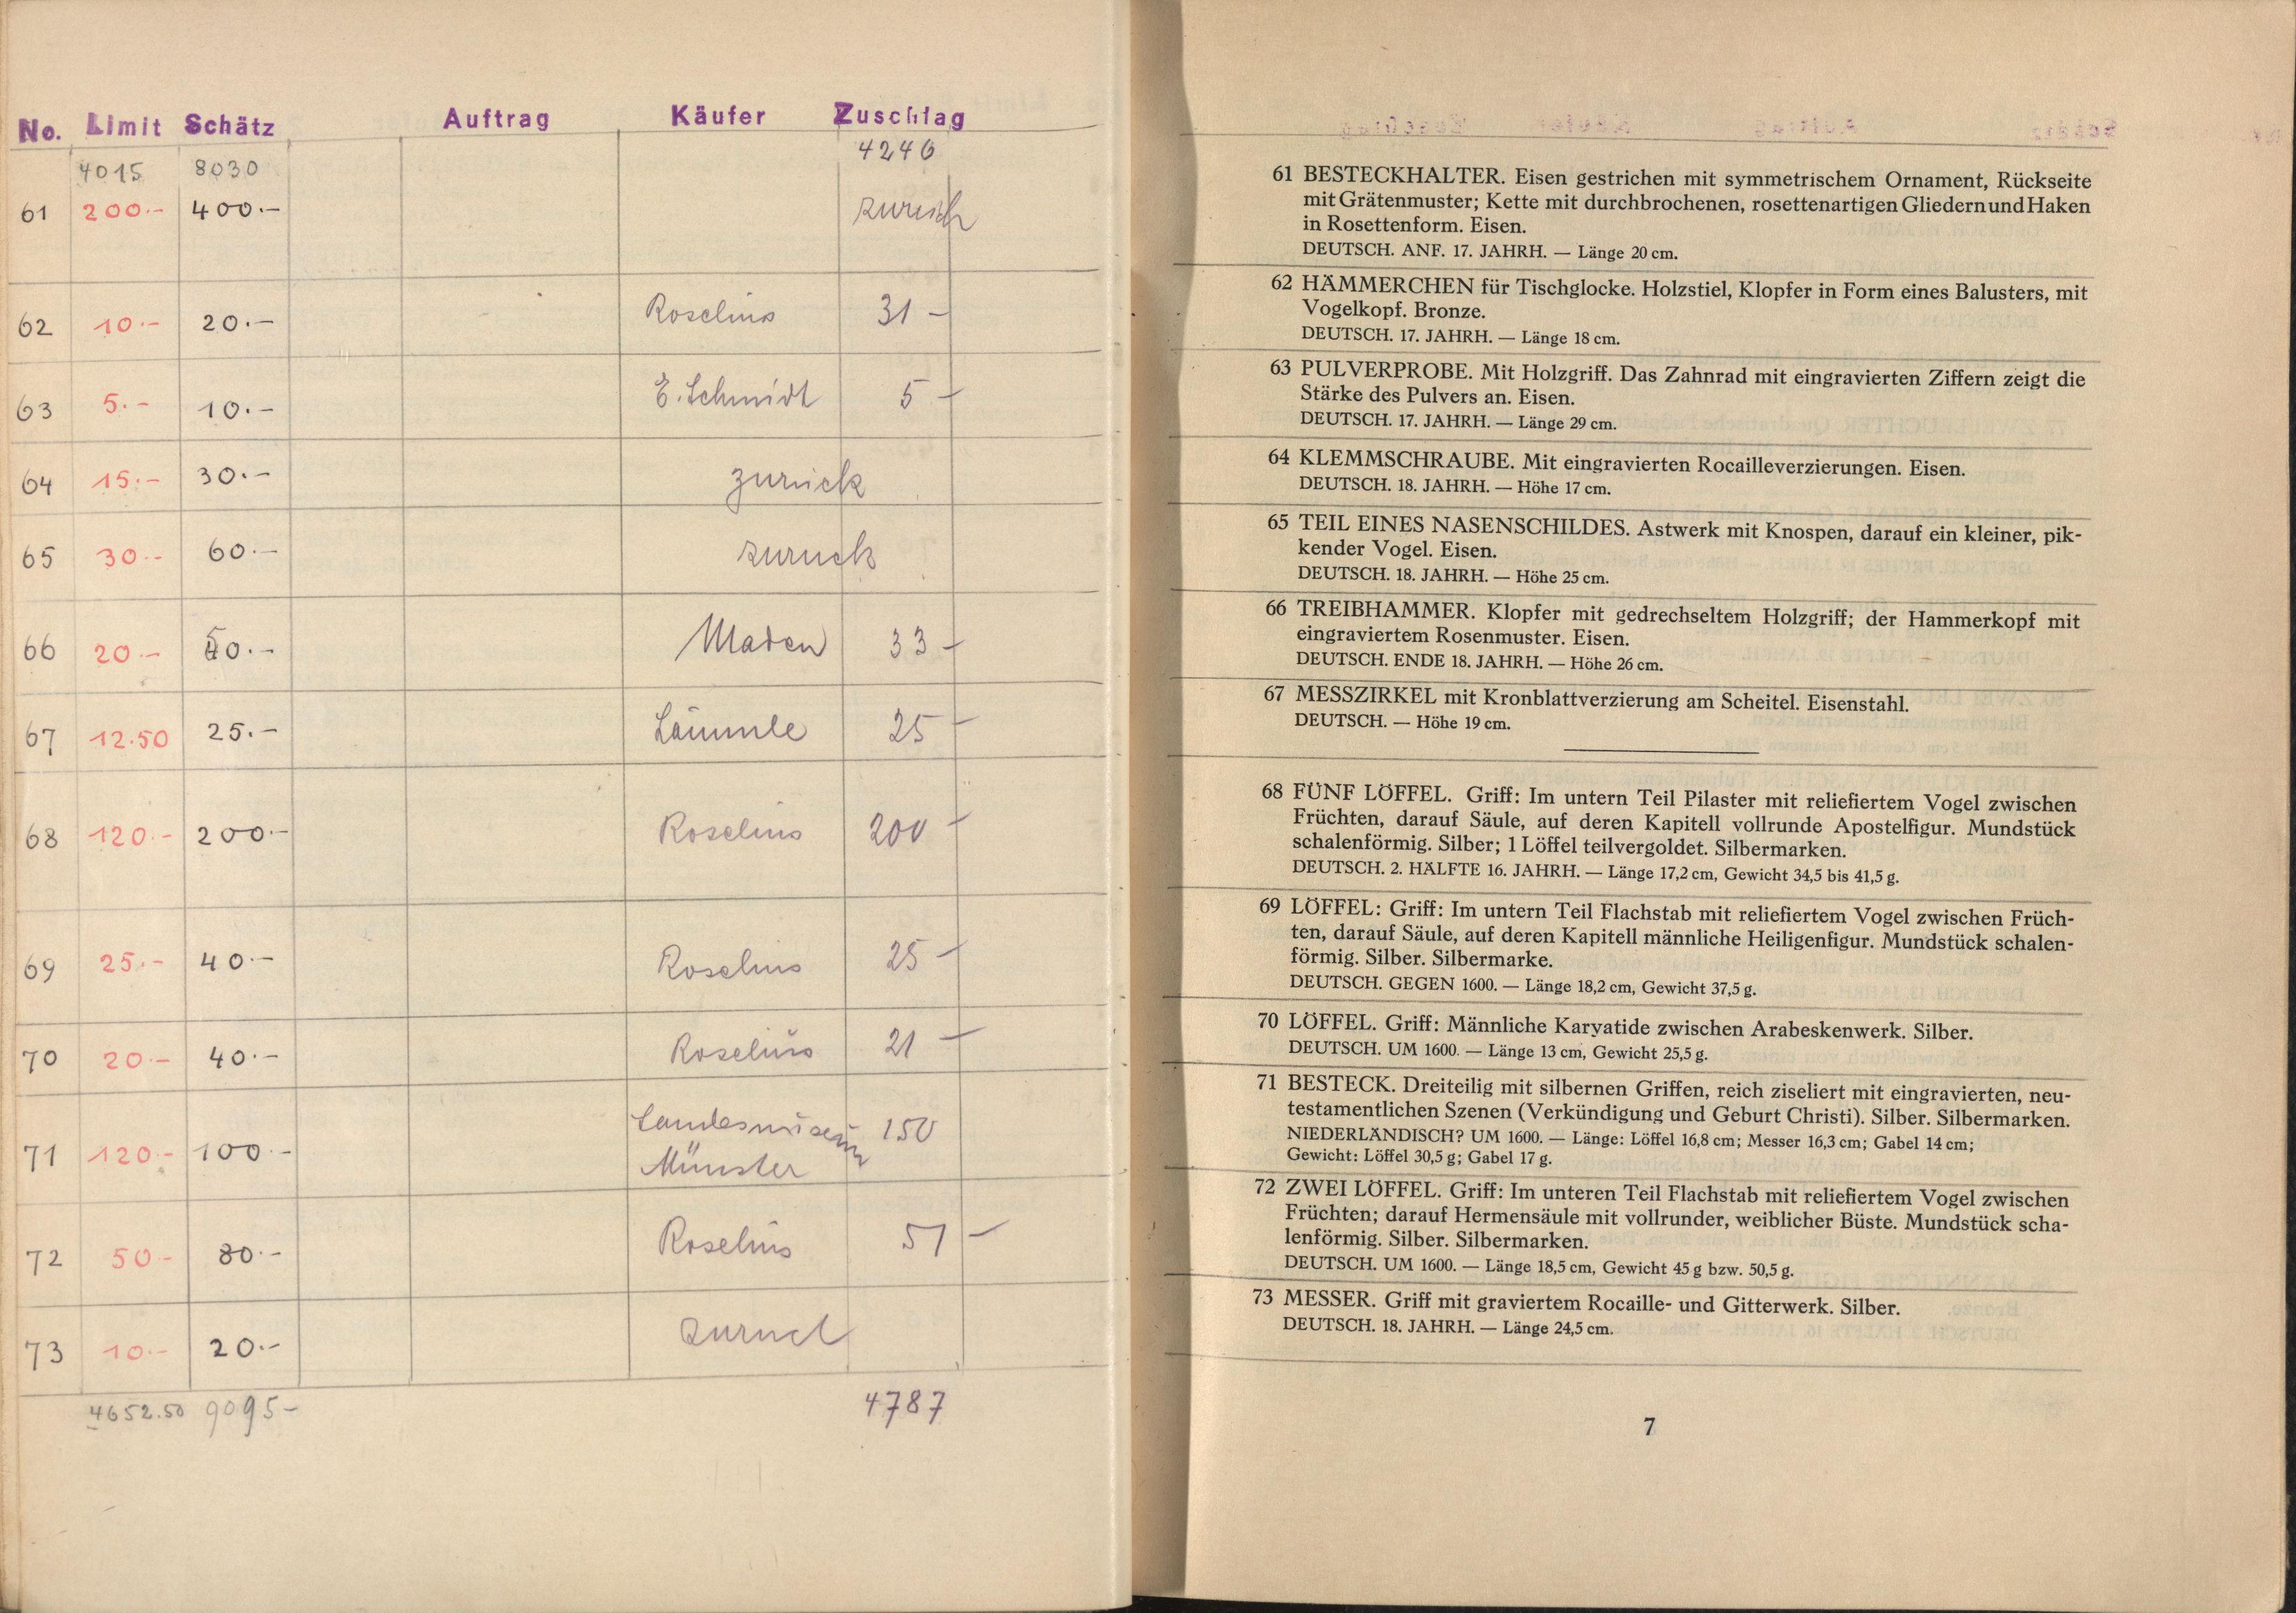 No. Limit Schätz Auftrag Käufer Zuschlag
4015 8030 4246
61 200.- 400.- zurück
62 10.- 20.- Roselius 31 -
63 5.- 10.- E. Schmidt 5 -
64 15.- 30.- zurück
65 30.- 60.- zurück
66 20.- 50.- 33 -
67 12.50 25.- Lämmle 25 -
68 120.- 200.- Roselius 200 -
69 25.- 40.- Roselius 25 -
70 20.- 40.- Roselius 21 -
71 120.- 100.- Landesmuseum 150
Münster
72 50.- 80.- Roselius 51 -
73 10.- 20.- zurück
4652.50 9095- 4787
61 BESTECKHALTER. Eisen gestrichen mit symmetrischem Ornament, Rückseite
mit Grätenmuster; Kette mit durchbrochenen, rosettenartigen Gliedern und Haken
in Rosettenform. Eisen.
DEUTSCH. ANF. 17. JAHRH. — Länge 20 cm.
62 HÄMMERCHEN für Tischglocke. Holzstiel, Klopfer in Form eines Balusters, mit
Vogelkopf. Bronze.
DEUTSCH. 17. JAHRH. — Länge 18 cm.
63 PULVERPROBE. Mit Holzgriff. Das Zahnrad mit eingravierten Ziffern zeigt die
Stärke des Pulvers an. Eisen.
DEUTSCH. 17. JAHRH. — Länge 29 cm.
64 KLEMMSCHRAUBE. Mit eingravierten Rocailleverzierungen. Eisen.
DEUTSCH. 18. JAHRH. — Höhe 17 cm.
65 TEIL EINES NASENSCHILDES. Astwerk mit Knospen, darauf ein kleiner, pik-
kender Vogel. Eisen.
DEUTSCH. 18. JAHRH. — Höhe 25 cm.
66 TREIBHAMMER. Klopfer mit gedrechseltem Holzgriff; der Hammerkopf mit
eingraviertem Rosenmuster. Eisen.
DEUTSCH. ENDE 18. JAHRH. — Höhe 26 cm.
67 MESSZIRKEL mit Kronblattverzierung am Scheitel. Eisenstahl.
DEUTSCH. — Höhe 19 cm.
68 FÜNF LÖFFEL. Griff: Im untern Teil Pilaster mit reliefiertem Vogel zwischen
Früchten, darauf Säule, auf deren Kapitell vollrunde Apostelfigur. Mundstück
schalenförmig. Silber; 1 Löffel teilvergoldet. Silbermarken.
DEUTSCH. 2. HÄLFTE 16. JAHRH. — Länge 17,2 cm, Gewicht 34,5 bis 41,5 g.
69 LÖFFEL: Griff: Im untern Teil Flachstab mit reliefiertem Vogel zwischen Früch-
ten, darauf Säule, auf deren Kapitell männliche Heiligenfigur. Mundstück schalen-
förmig. Silber. Silbermarke.
DEUTSCH. GEGEN 1600. — Länge 18,2 cm, Gewicht 37,5 g.
70 LÖFFEL. Griff: Männliche Karyatide zwischen Arabeskenwerk. Silber.
DEUTSCH. UM 1600. — Länge 13 cm, Gewicht 25,5 g.
71 BESTECK. Dreiteilig mit silbernen Griffen, reich ziseliert mit eingravierten, neu-
testamentlichen Szenen (Verkündigung und Geburt Christi). Silber. Silbermarken.
NIEDERLÄNDISCH? UM 1600. — Länge: Löffel 16,8 cm; Messer 16,3 cm; Gabel 14 cm;
Gewicht: Löffel 30,5 g; Gabel 17 g.
72 ZWEI LÖFFEL. Griff: Im unteren Teil Flachstab mit reliefiertem Vogel zwischen
Früchten; darauf Hermensäule mit vollrunder, weiblicher Büste. Mundstück scha-
lenförmig. Silber. Silbermarken.
DEUTSCH. UM 1600. — Länge 18,5 cm, Gewicht 45 g bzw. 50,5 g.
73 MESSER. Griff mit graviertem Rocaille- und Gitterwerk. Silber.
DEUTSCH. 18. JAHRH. — Länge 24,5 cm.
7